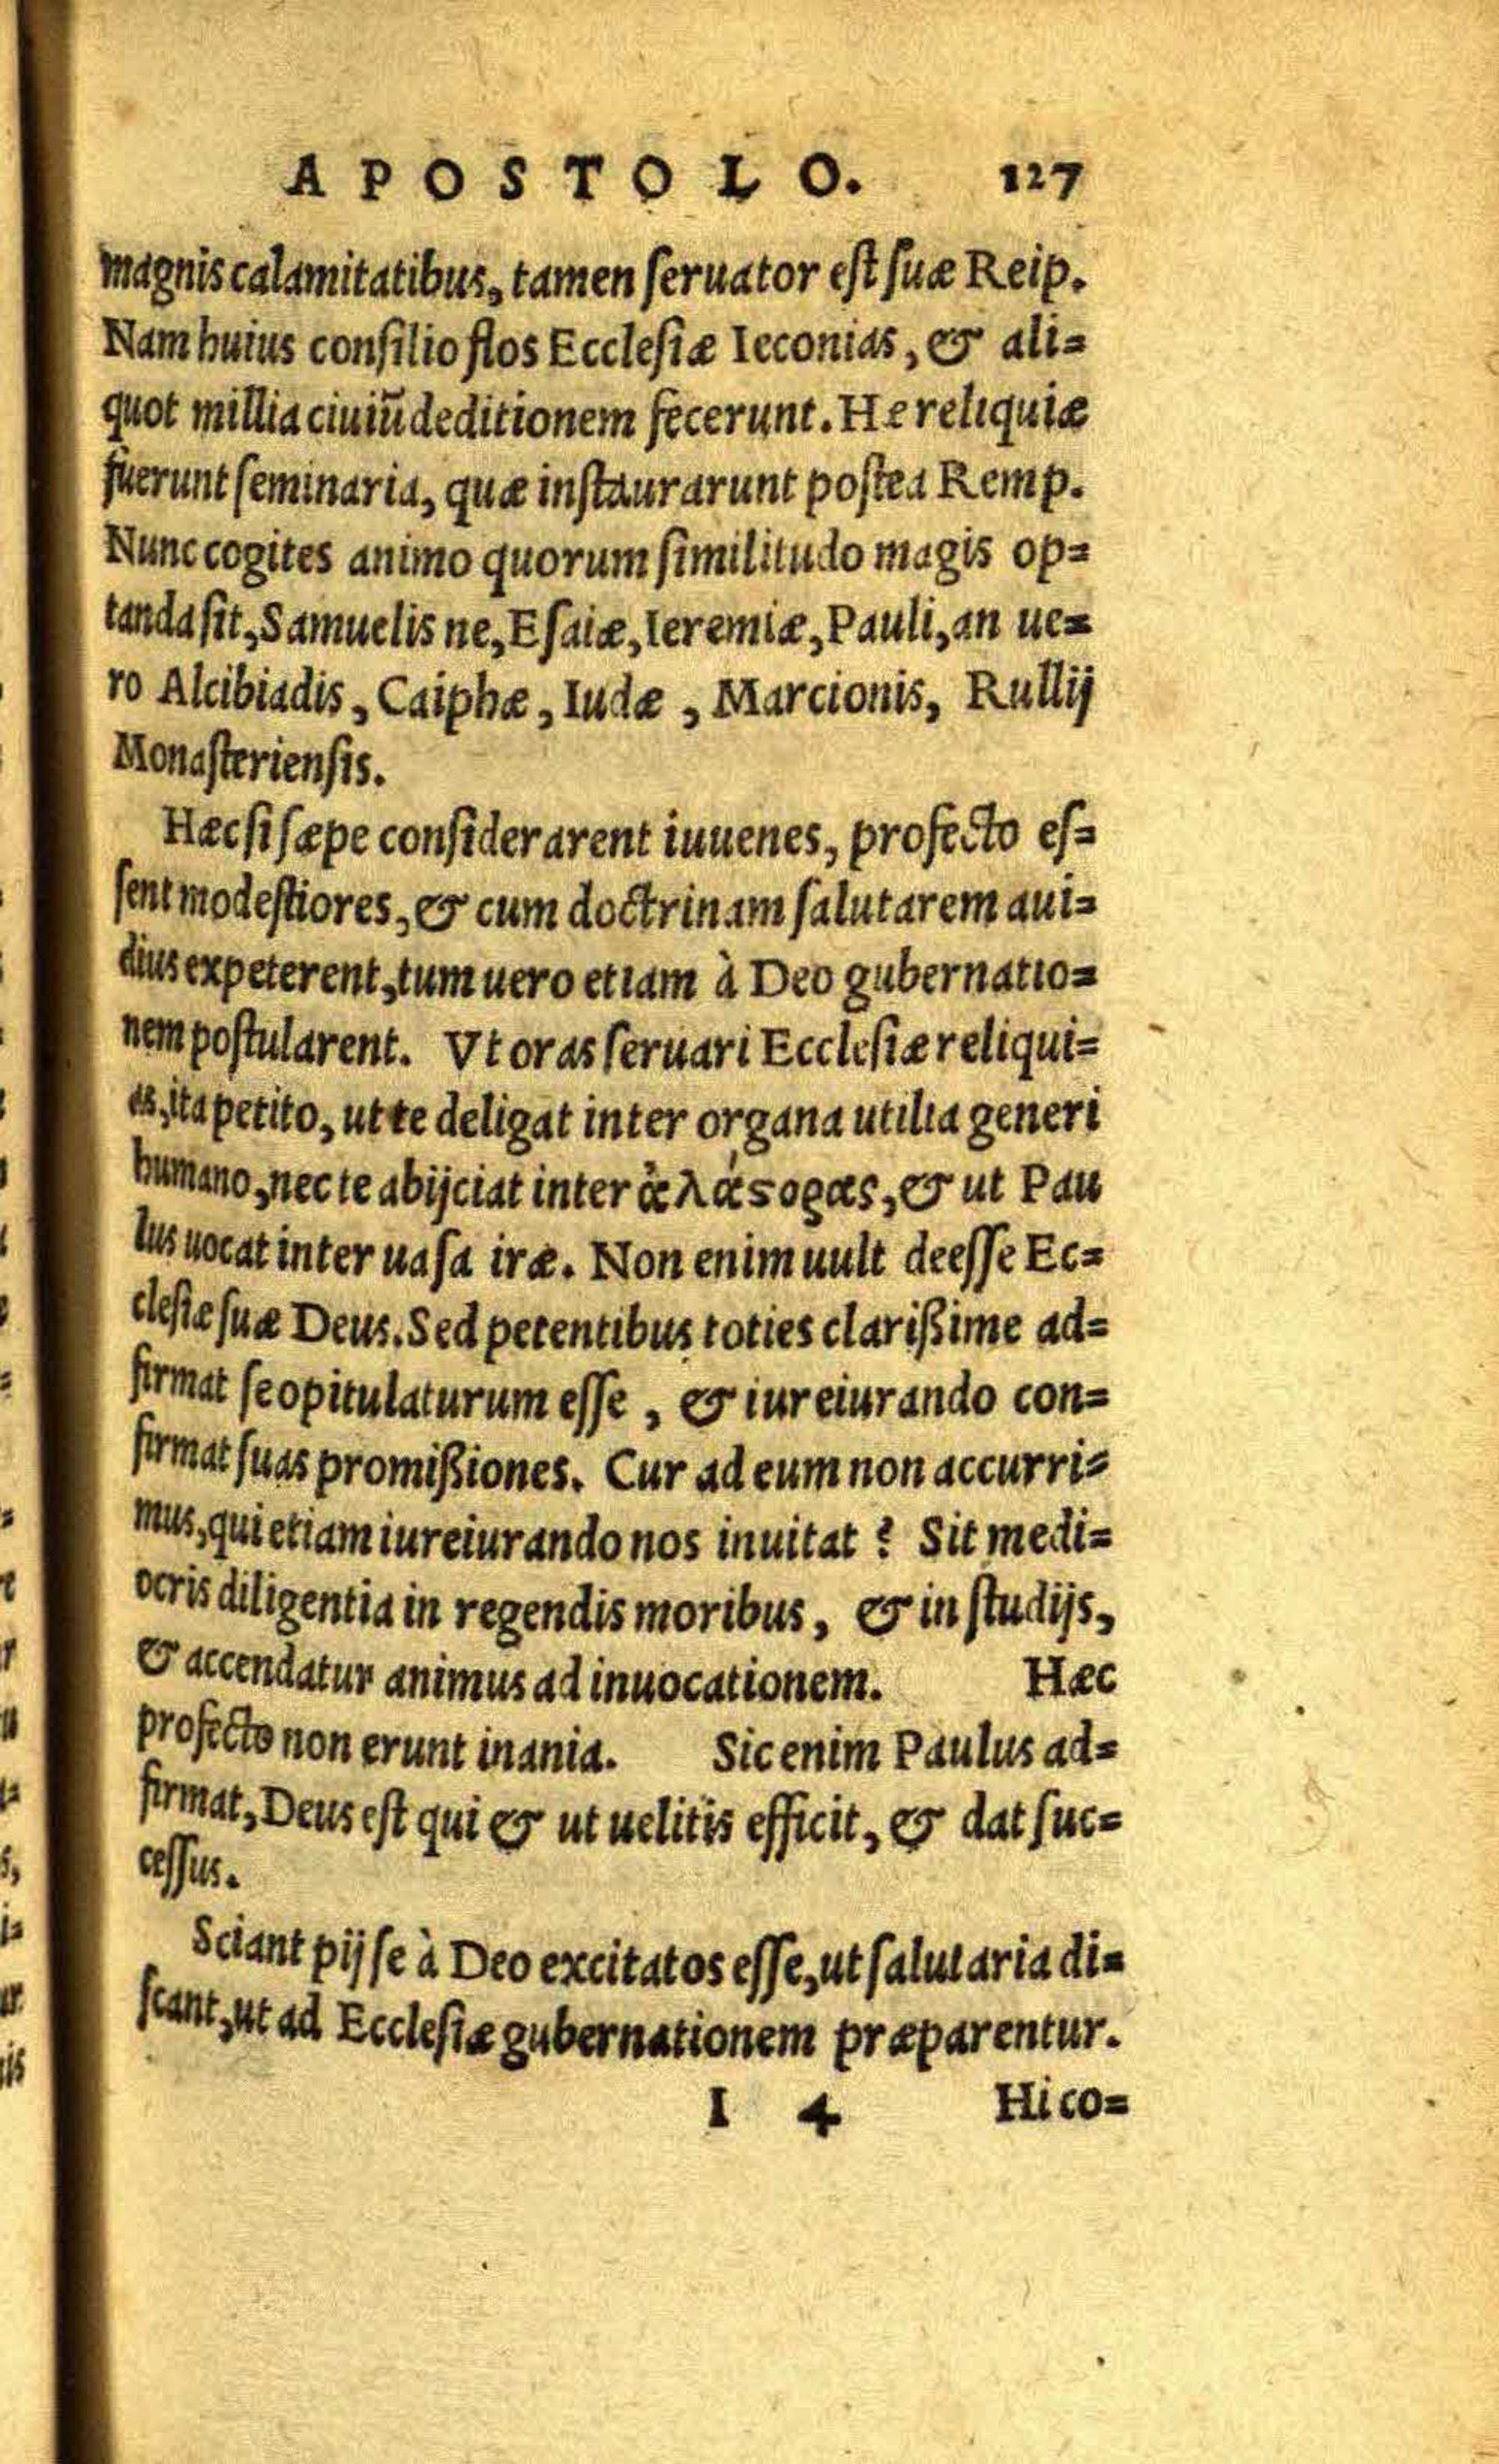 APOSTOLO. 127
magnis calamitatibus, tamen ſeruator eſt ſuæ Reip.
Nam huius conſilio flos Eccleſiæ Ieconias, & ali=
quot millia ciuiũ deditionem fecerunt. He reliquiæ
fuerunt ſeminaria, quæ inſtaurarunt poſtea Remp.
Nunc cogites animo quorum ſimilitudo magis op=
tanda ſit, Samuelis ne, Eſaiæ, Ieremiæ, Pauli, an ue=
ro Alcibiadis, Caiphæ, Iudæ, Marcionis, Rullij
Monaſterienſis.
Hæc ſi ſæpe conſiderarent iuuenes, profecto eſ=
ſent modeſtiores, & cum doctrinam ſalutarem aui=
dius expeterent, tum uero etiam à Deo gubernatio=
nem poſtularent. Vt oras ſeruari Eccleſiæ reliqui=
as, ita petito, ut te deligat inter organa utilia generi
humano, nec te abijciat inter ἀλάϛορας, & ut Pau
lus uocat inter uaſa iræ. Non enim uult deeſſe Ec=
cleſiæ ſuæ Deus. Sed petentibus toties clarißime ad=
firmat ſe opitulaturum eſſe, & iureiurando con=
firmat ſuas promißiones. Cur ad eum non accurri=
mus, qui etiam iureiurando nos inuitat? Sit medi=
ocris diligentia in regendis moribus, & in ſtudijs,
& accendatur animus ad inuocationem. Hæc
profecto non erunt inania. Sic enim Paulus ad=
firmat, Deus eſt qui & ut uelitis efficit, & dat ſuc=
ceſſus.
Sciant pij ſe à Deo excitatos eſſe, ut ſalutaria di=
ſcant, ut ad Eccleſiæ gubernationem præparentur.
I 4 Hi co=